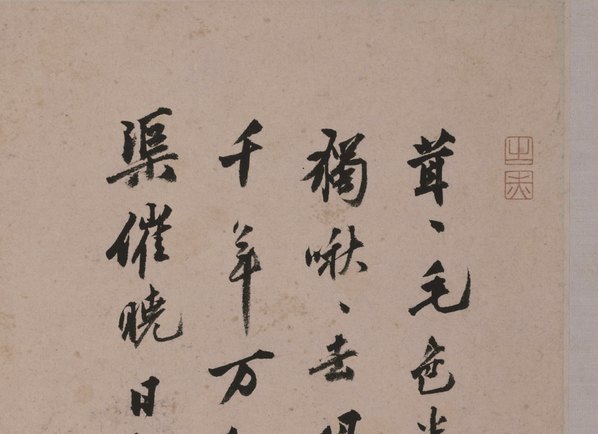 茸、毛色
獨啾、去
千年万
渠催曉日